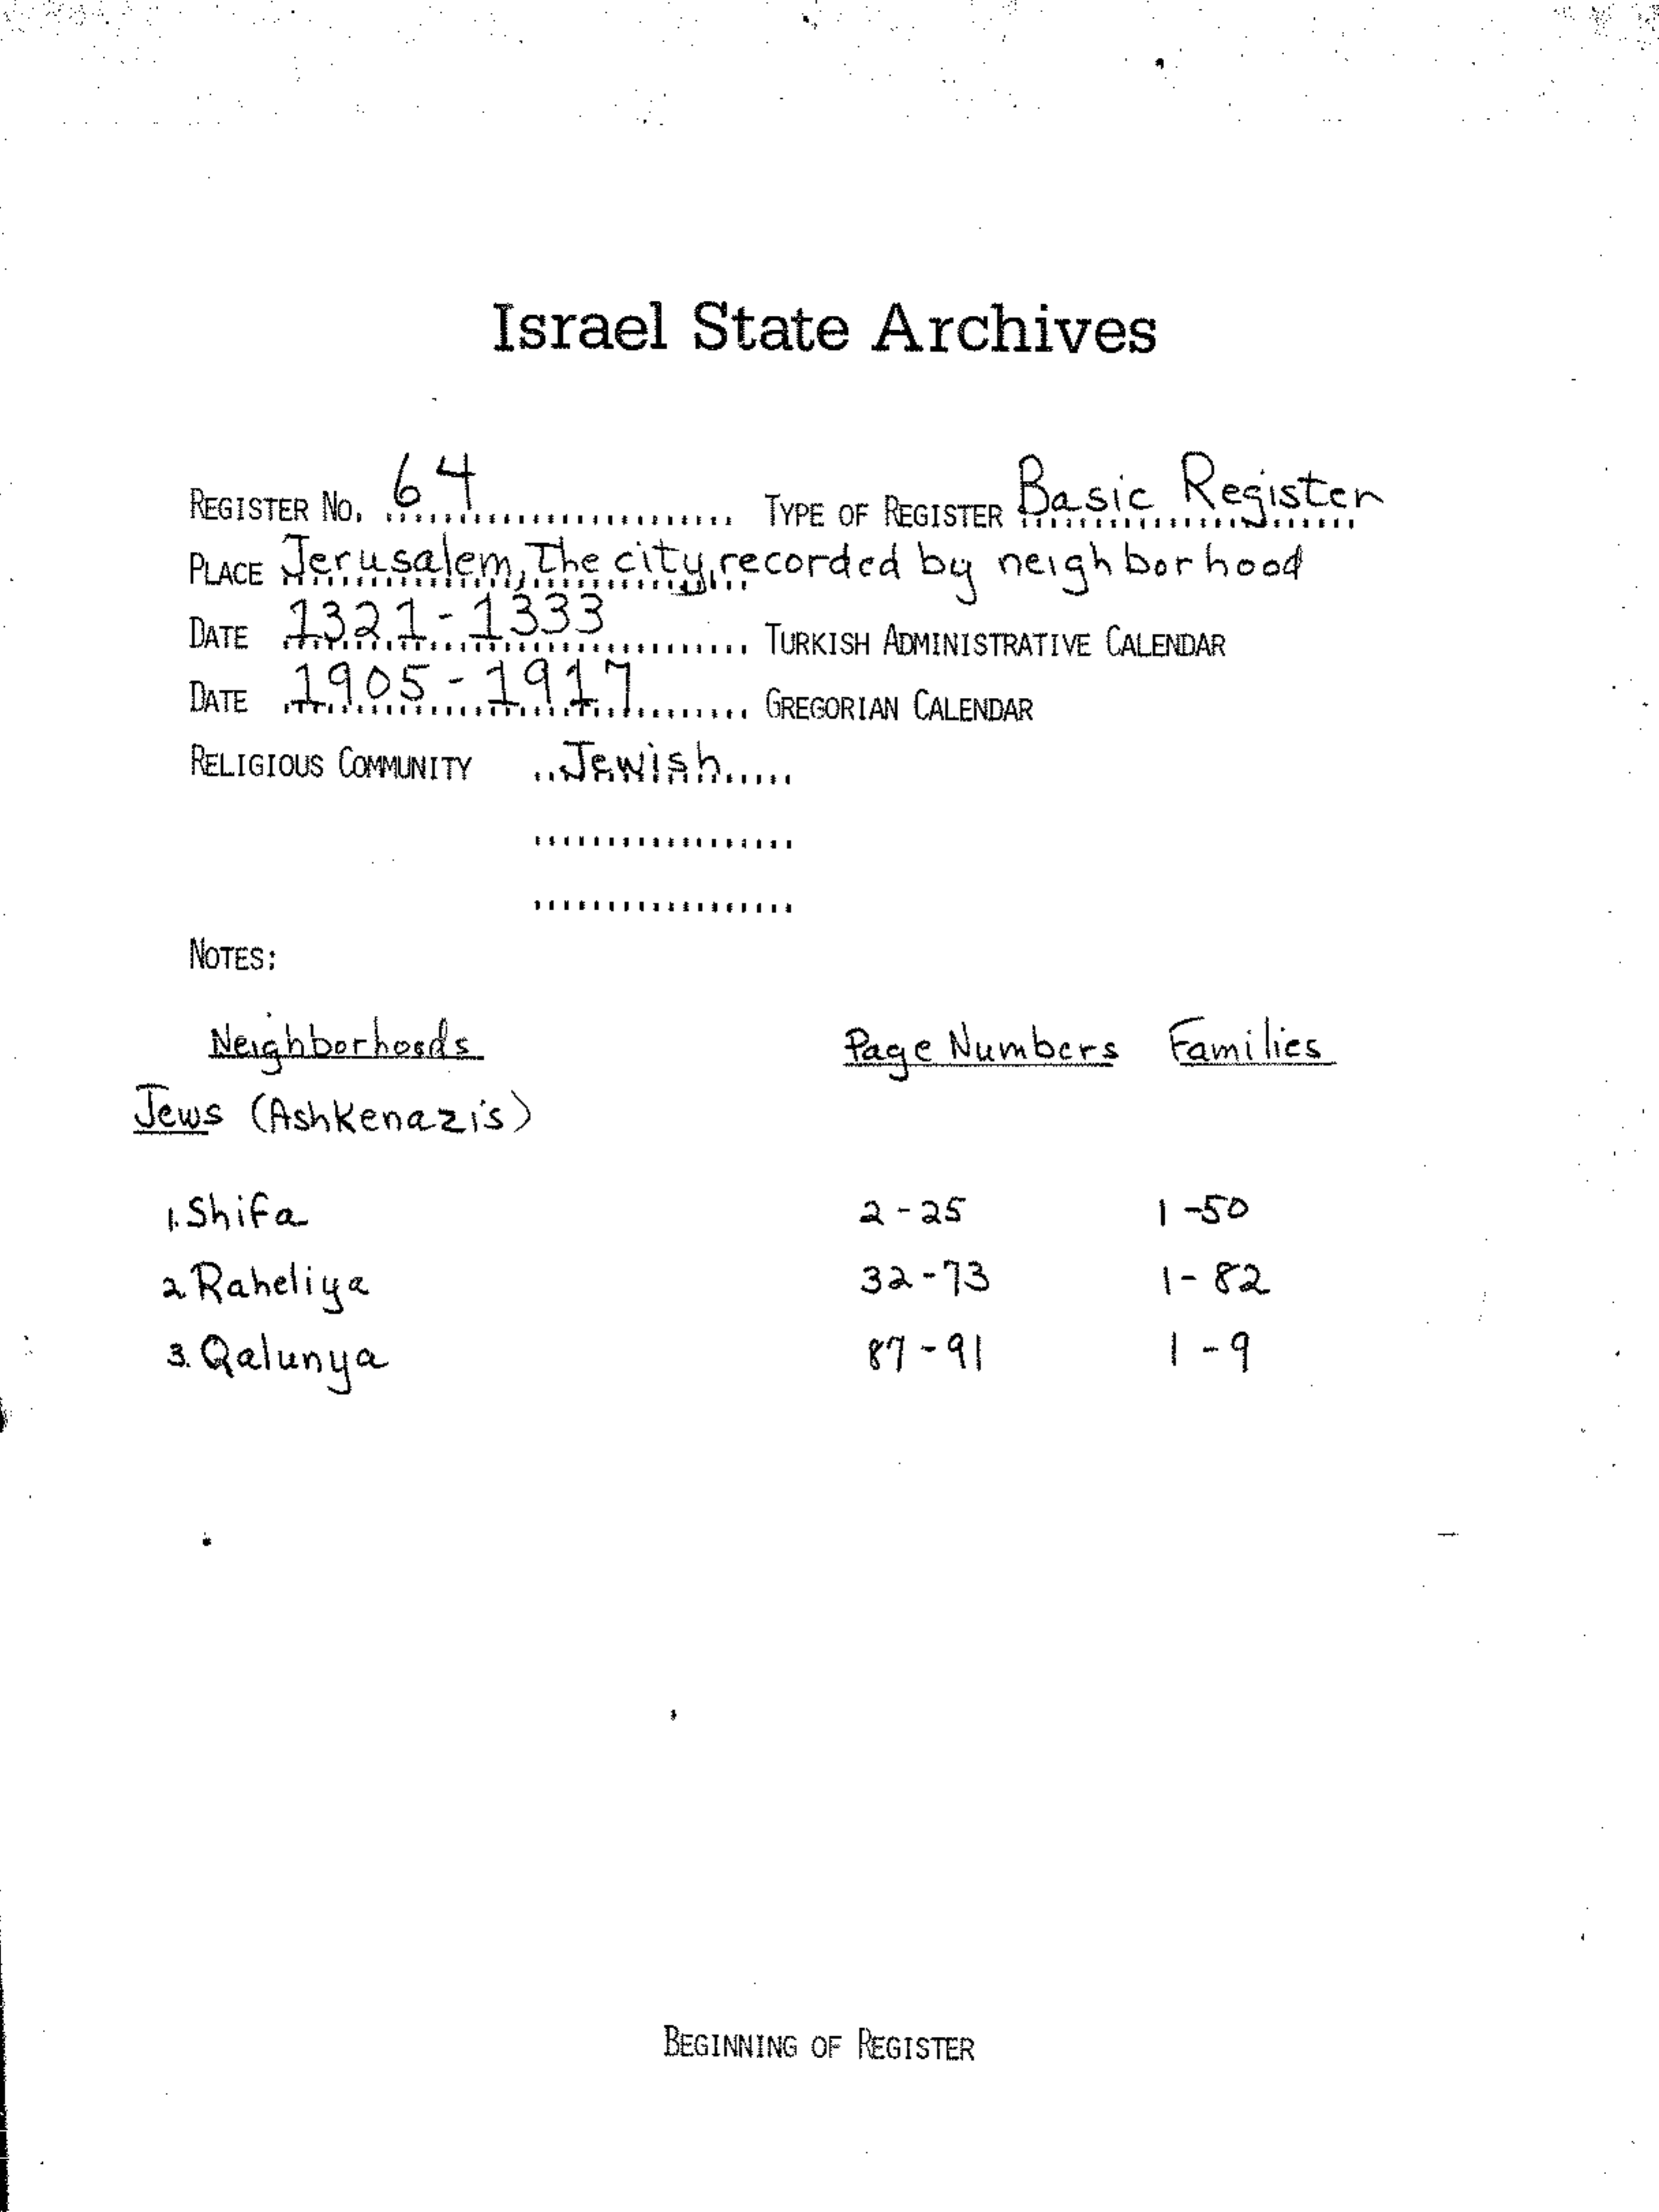 Israel State Archives
REGISTER NO. 64 TYPE OF REGISTER Basic Register
PLACE Jerusalem, The city, recorded by neighborhood
DATE 1321-1333 TURKISH ADMINISTRATIVE CALENDAR
DATE 1905-1917 GREGORIAN CALENDAR
RELIGIOUS COMMUNITY Jewish
NOTES:
Neighborhoods Page Numbers Families
Jews (Ashkenazis)
1. Shifa 2-25 1-50
2 Raheliya 32-73 1-82
3. Qalunya 87-91 1-9
BEGINNING OF REGISTER